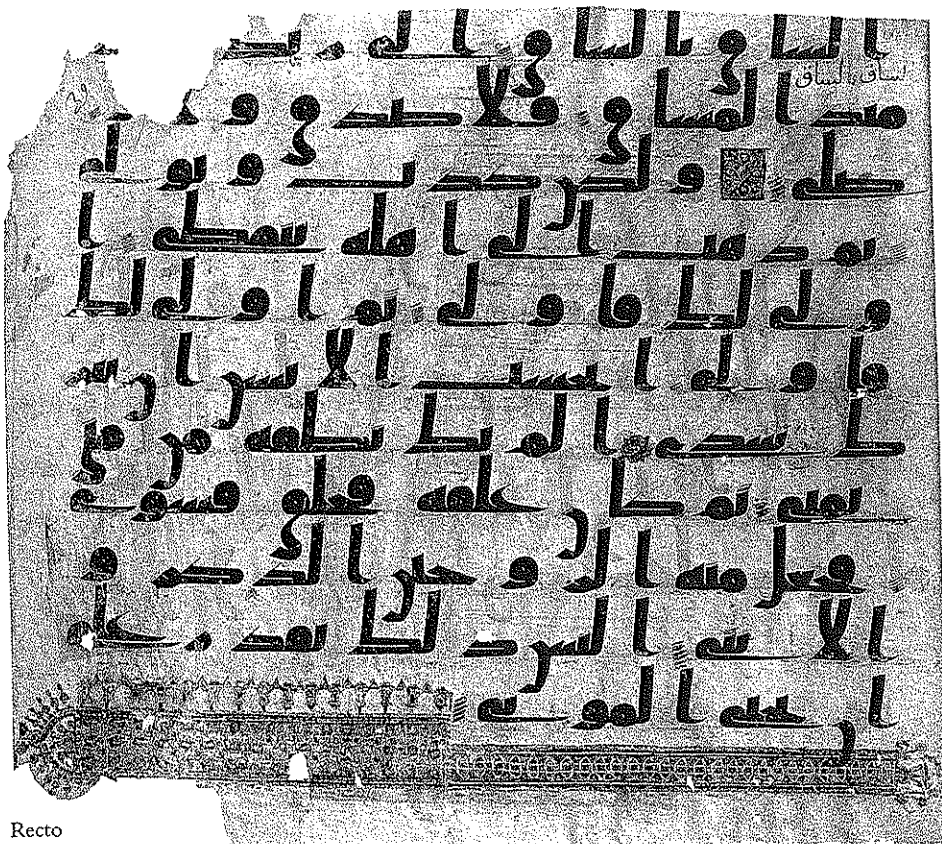 الساق بالساق الى ربك يو
لساق بالساق
مئذ المساق فلا صدق و لا
صلى ولكن كذب وتولى
ثم ذهب الى اهله يتمطى ا
ولى لك فاولى ثم اولى لك
فاولى ايحسب الانسن ان يتر
ك سدى الم يك نطفه من مني
يمنى ثم كان علقه فخلق فسوى
فجعل منه الزوجين الذكر و
الانثى اليس ذلك بقدر على
ان يحيى الموتى
Recto